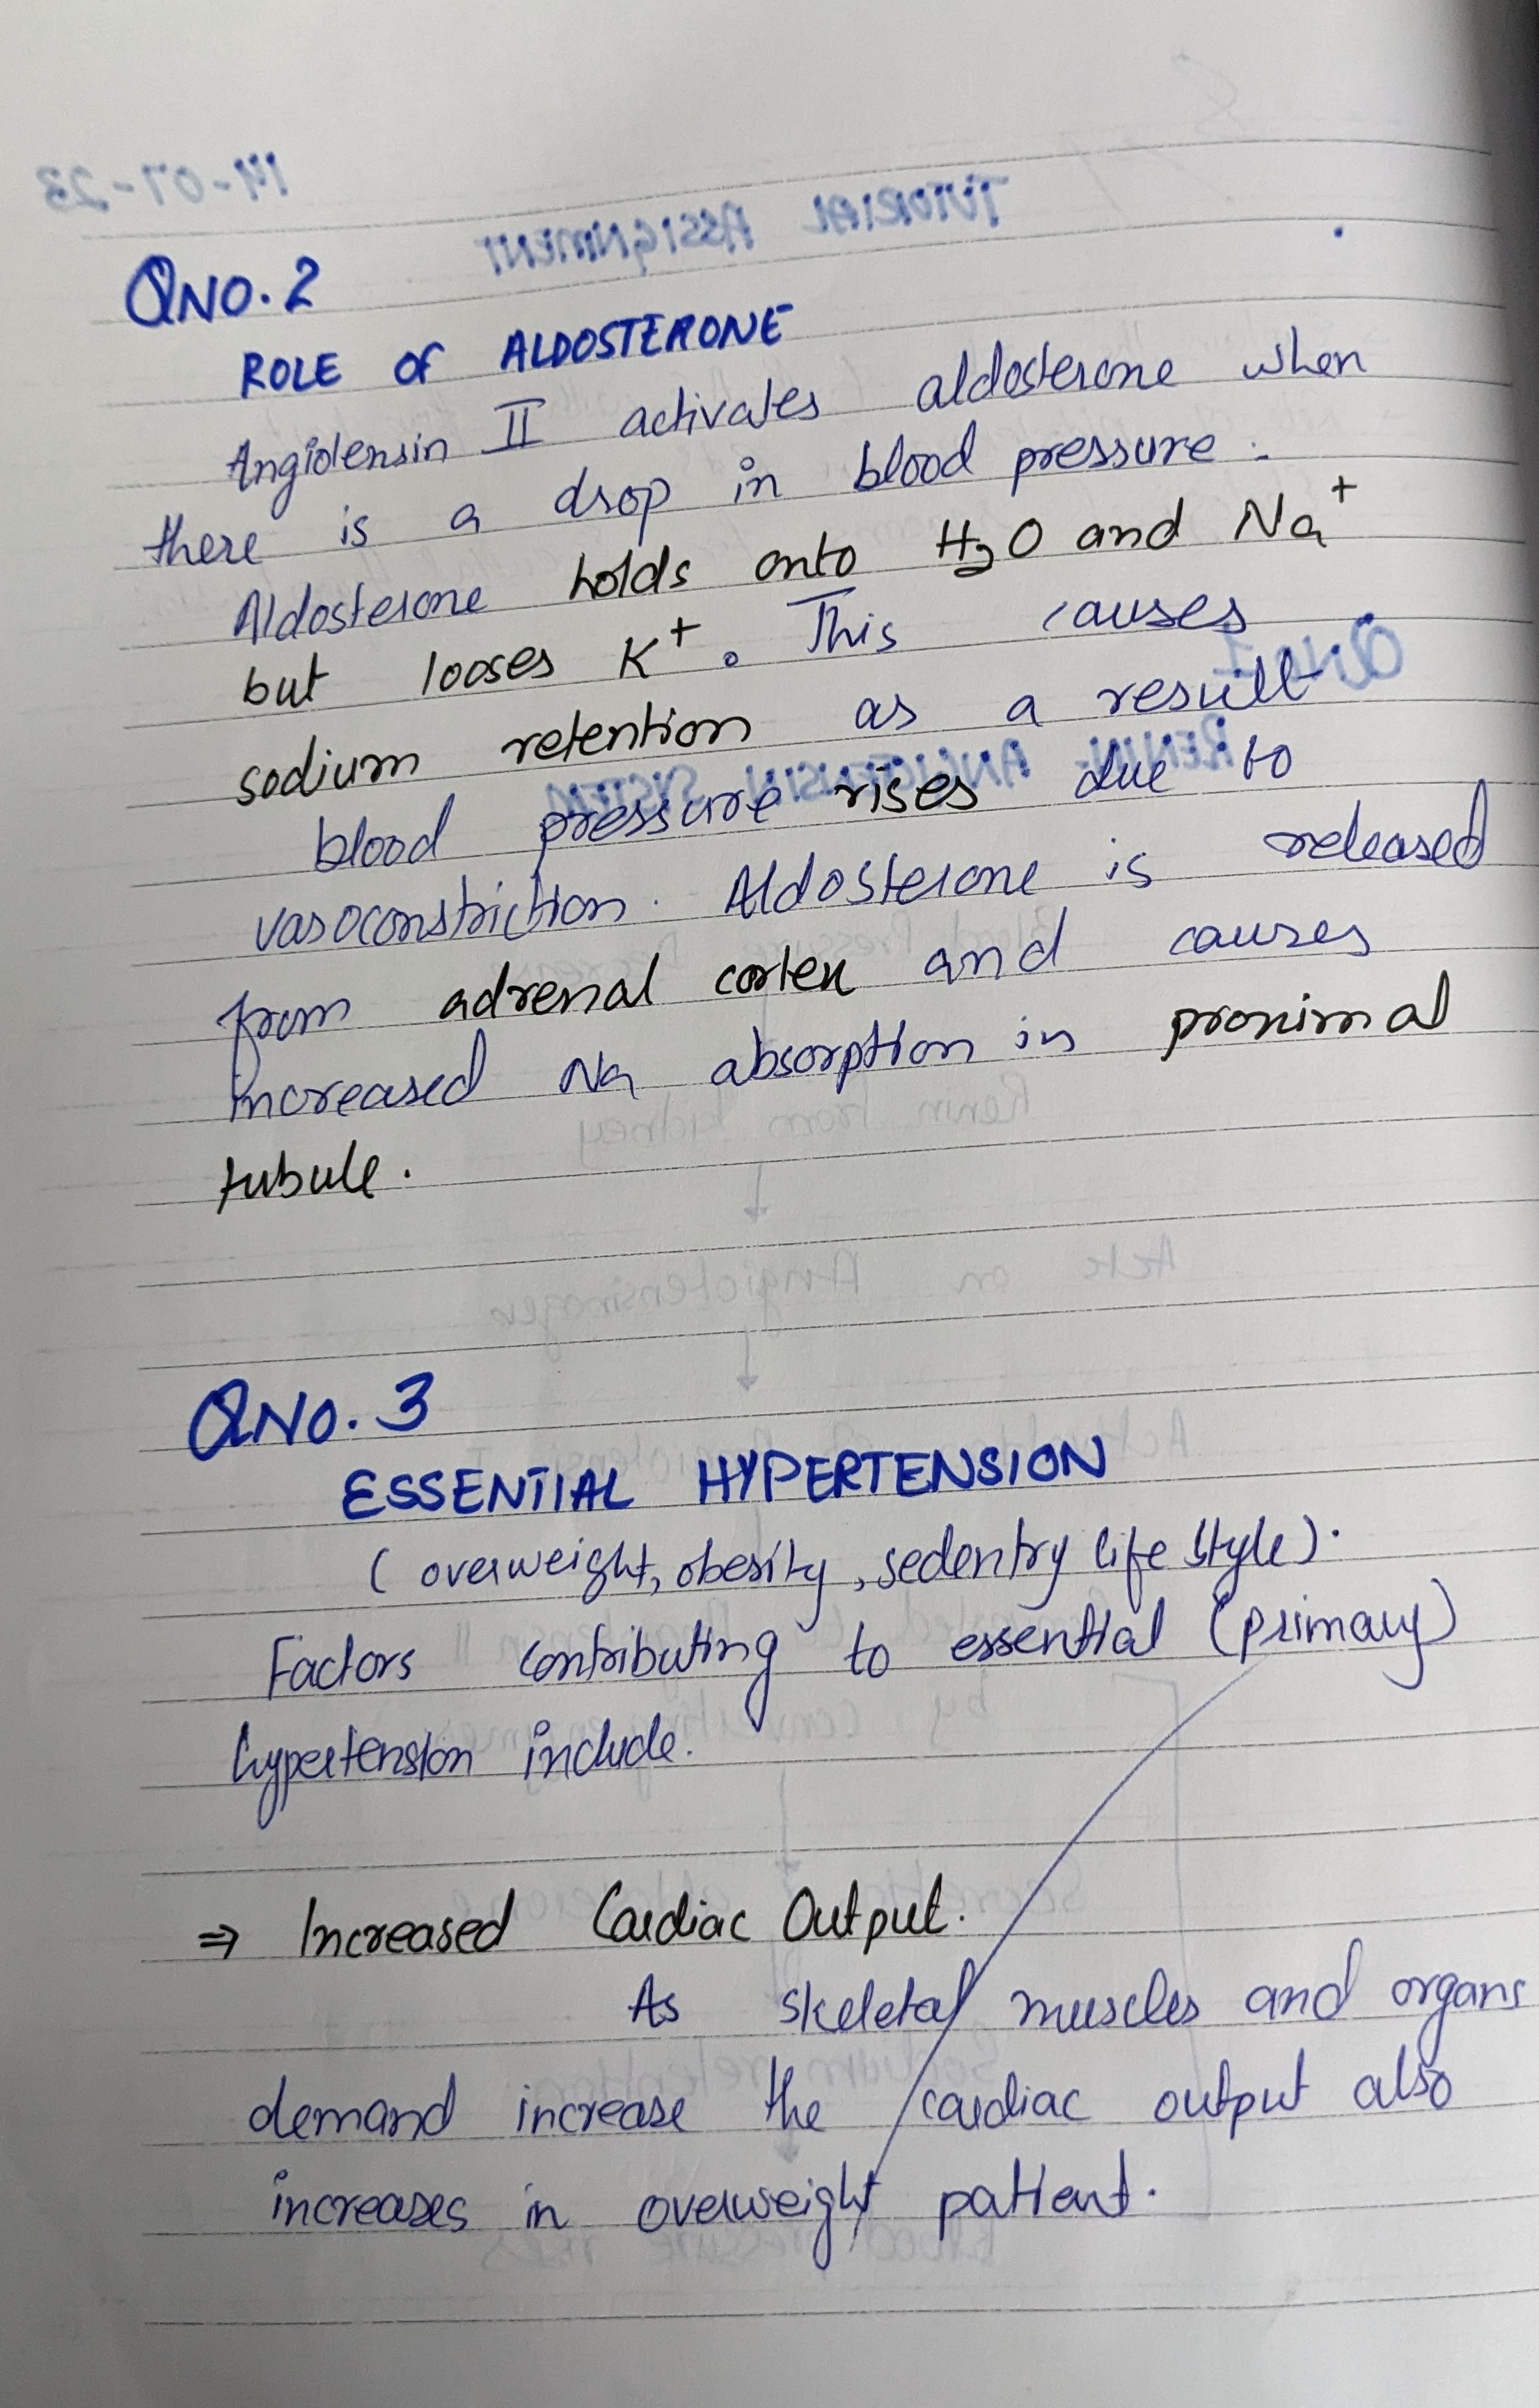 QNO.2
ROLE OF ALDOSTERONE
Angiotensin II activates aldosterone when
there is a drop in blood pressure.
Aldosterone holds onto H₂O and Na⁺
but looses K⁺. This causes
sodium retention as a result
blood pressure rises due to
vasoconstriction. Aldosterone is released
from adrenal cortex and causes
increased Na absorption in proximal
tubule.
QNO.3
ESSENTIAL HYPERTENSION
(overweight, obesity, sedentry life style).
Factors contributing to essential (primary)
hypertension include.
⇒ Increased Cardiac Output.
As skeletal muscles and organs
demand increase the cardiac output also
increases in overweight patient.